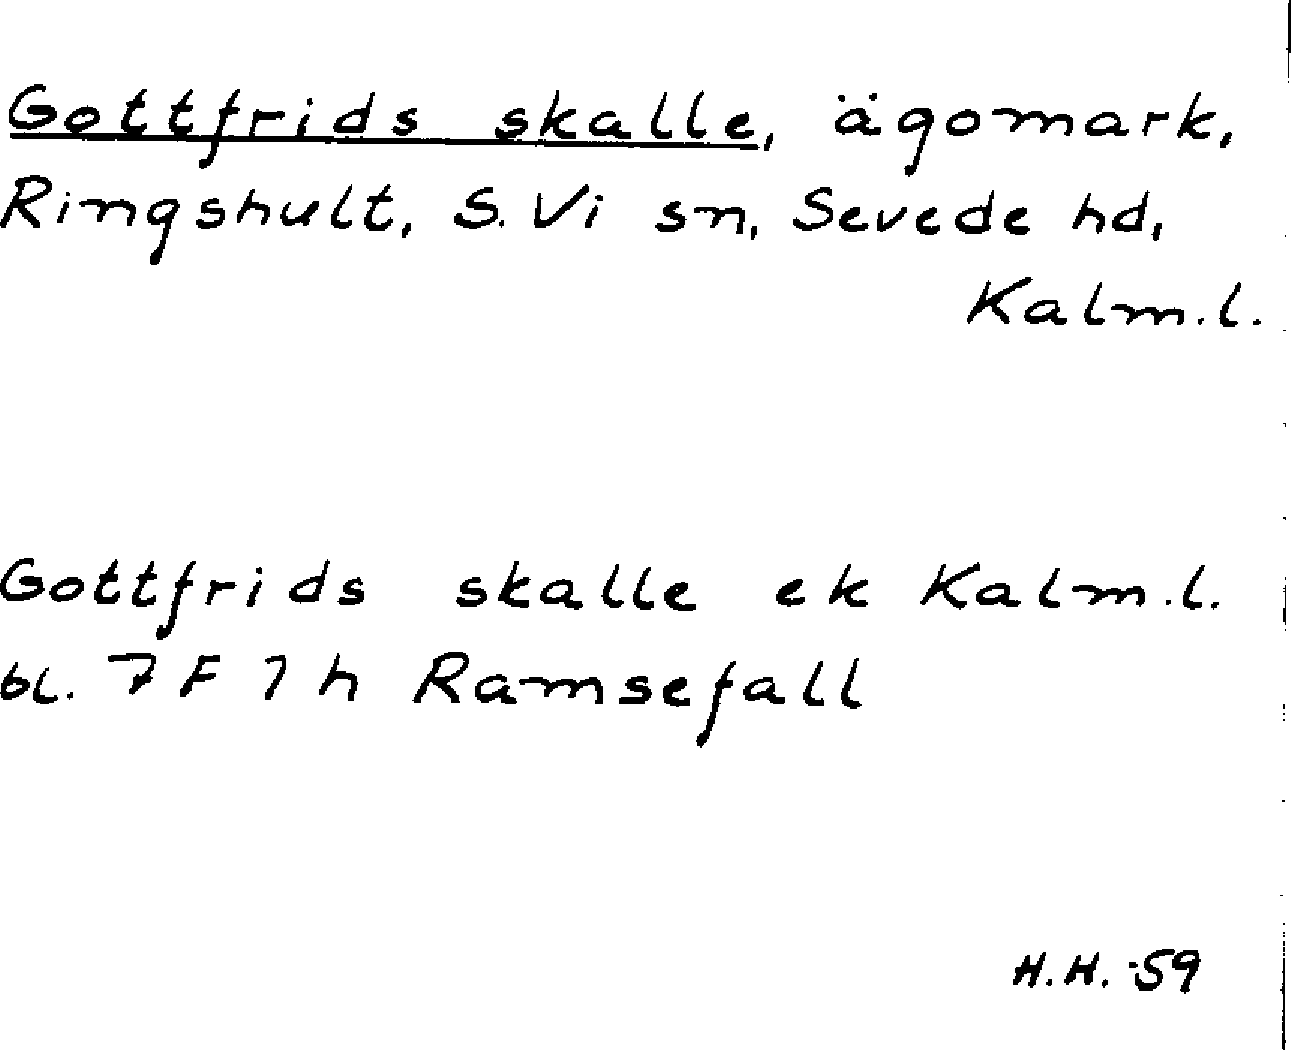 Gottfrids skalle, ägomark,
Ringshult, S. Vi sn, Sevede hd,
Kalm.l.
Gottfrids skalle ek Kalm.l.
bl. 7 F 7 h Ramsefall
H.H. -59